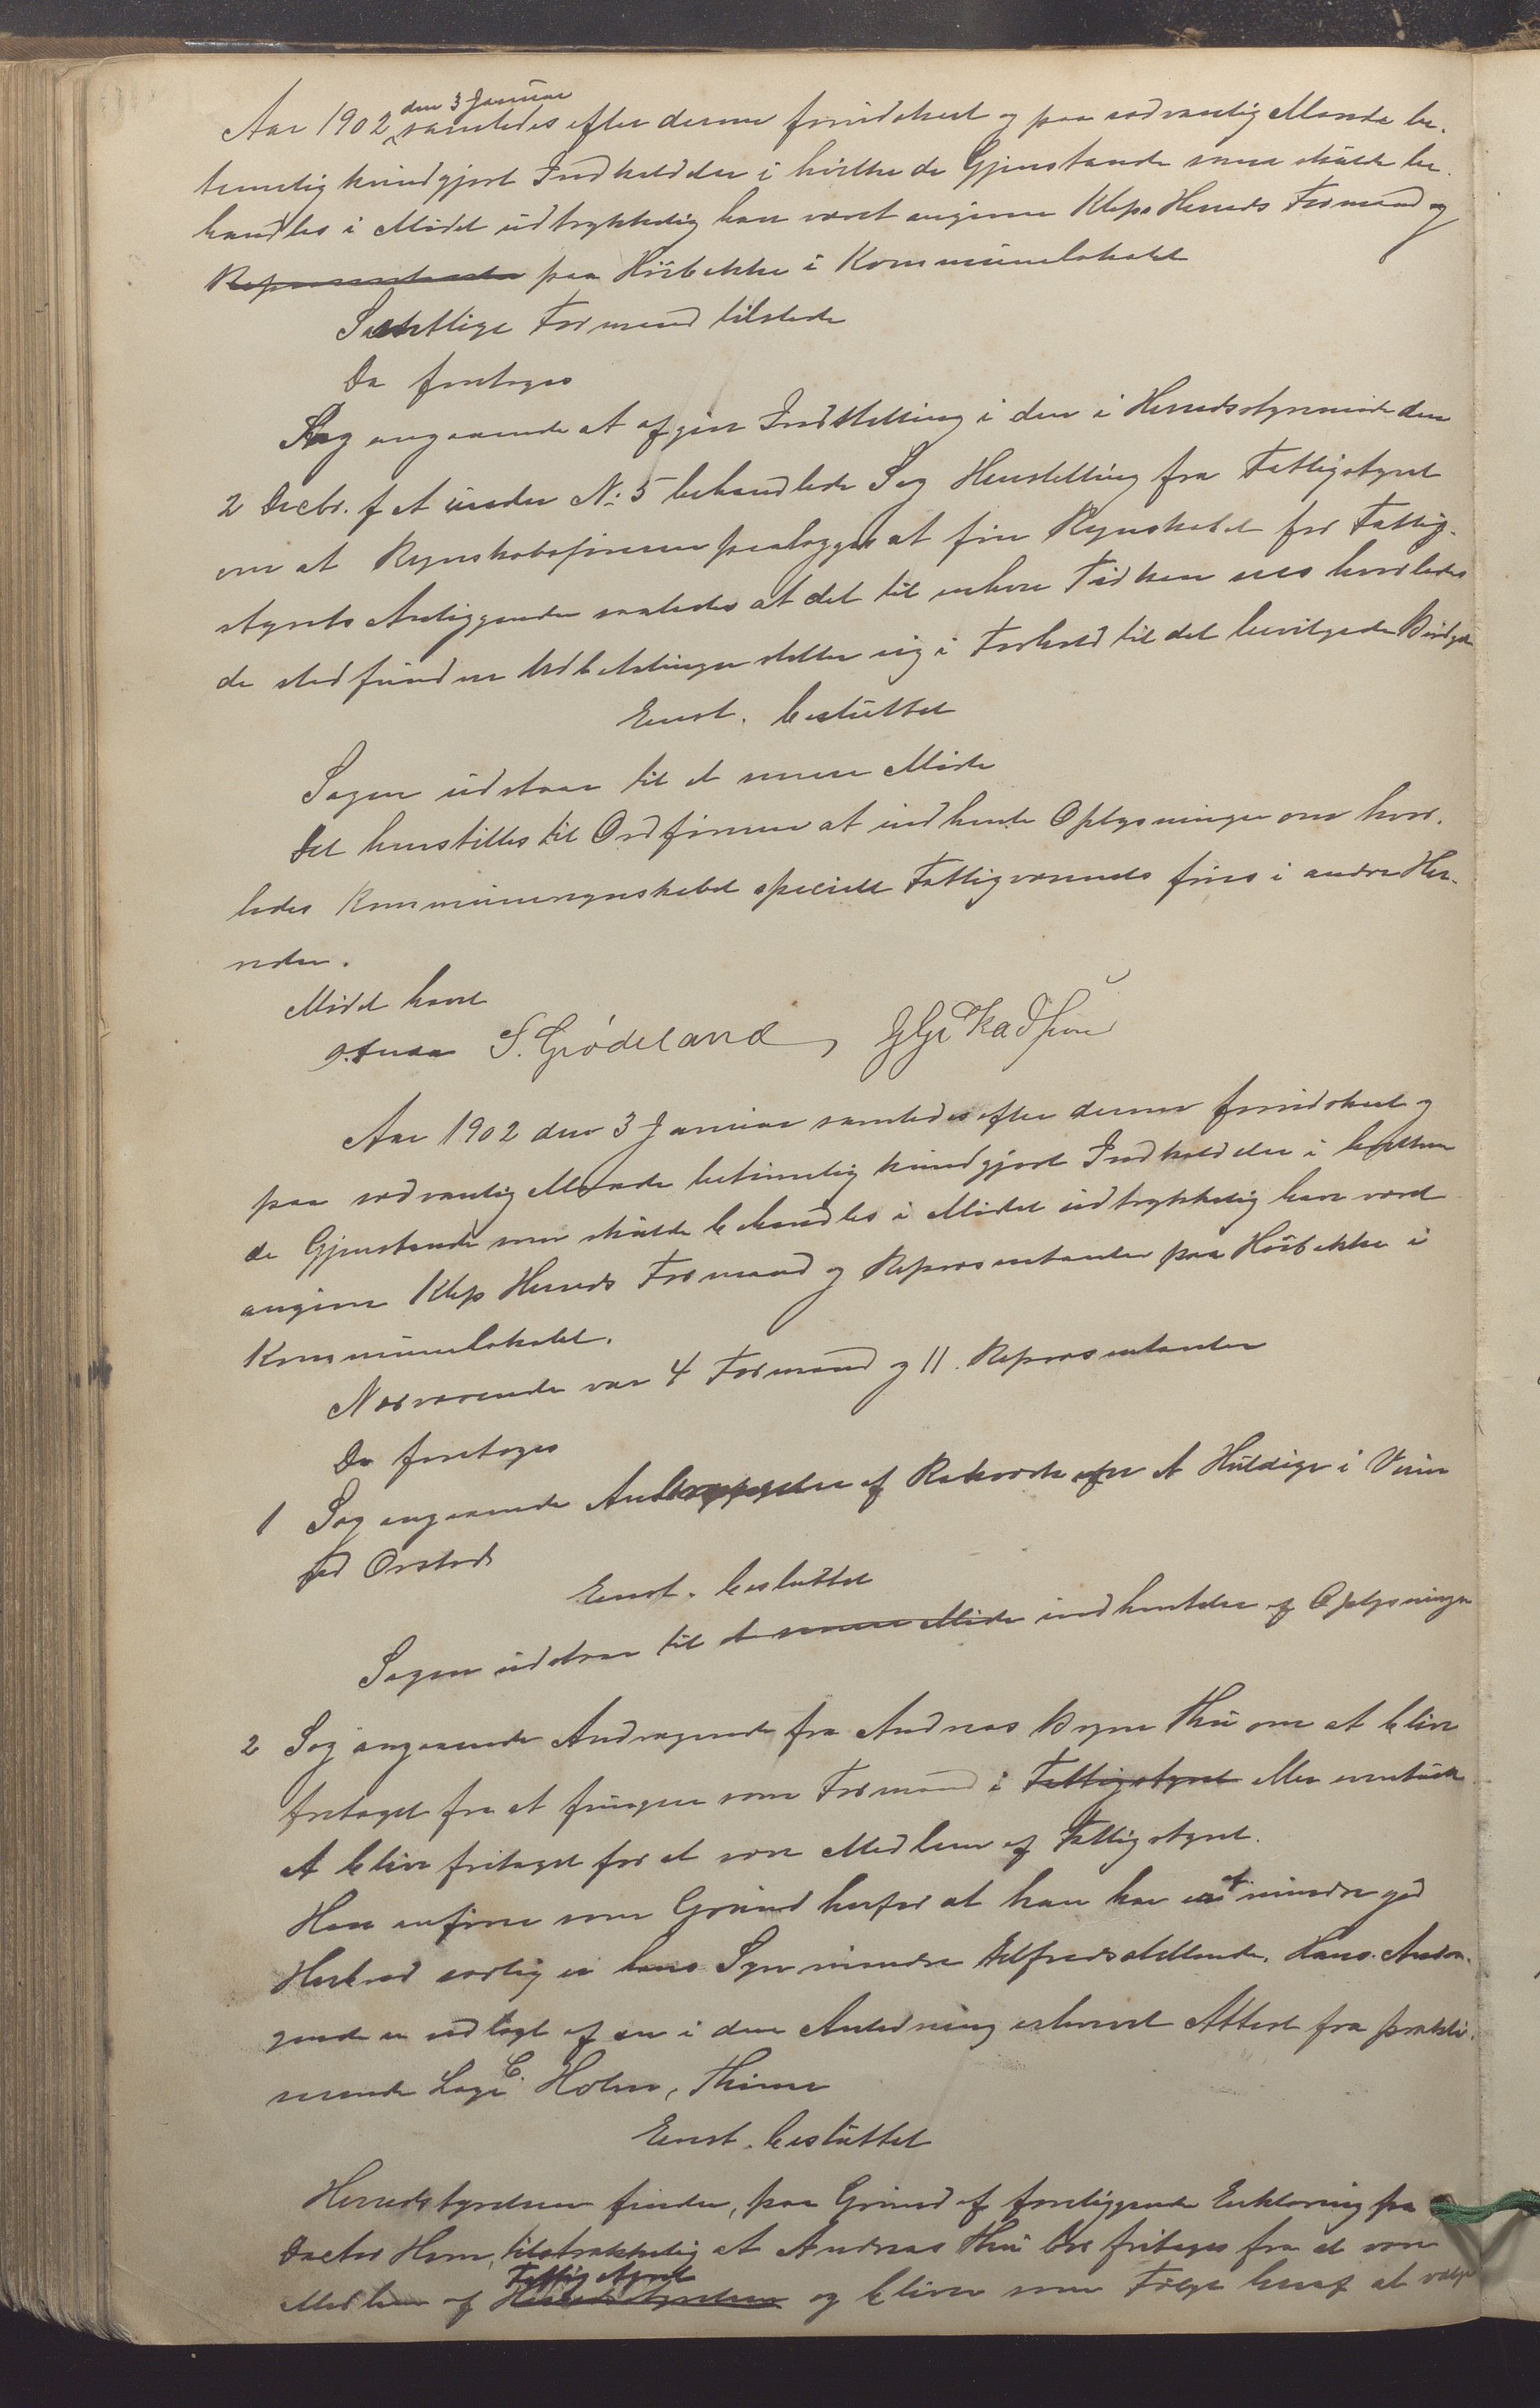 Aar 1902 den 3 Januar samledes efter dennes forudskeet og paa sædvanlig Maade be-
temelig kundgjort Indkaldelse i hvilke de Gjenstande som skulde be-
handles i Mødet udtrykkelig har været angivne Klep Herreds Formænd og
Repræsentanter paa Husebekke i Kommunelokalet
Samtlige Formænd tilstede
Da foretoges
Sag angaaende at afgive Indstilling i den i Herredsstyremøde den
2 Decbr. f A under No 5 behandlede Sag Henstilling fra Fattigstyret
om at Regnskabsføreren paalægges at føre Regnskabet for Fattig-
styrets Anliggender saaledes at det til enhver Tid kan sees hvorledes
de stedfundne Udbetalinger stiller sig i Forhold til det bevilgede Budget
Enst. besluttet
Sagen udstaar til et senere Møde
Det henstilles til Ordføreren at indhente Oplysninger om hvor-
ledes Kommuneregnskabet specielt Fattigvæsenets føres i andre Her-
reder.
Mødet hævet
S. Grødeland,
Aar 1902 den 3 Januar samledes efter dennes forudskeet og
paa sædvanlig Maade betimelig kundgjort Indkaldelse i hvilken
de Gjenstande som skulde behandles i Mødet udtrykkelig har været
angivne Klep Herreds Formænd og Repræsentanter paa Husebekke i
Kommunelokalet.
Nærværende var 4 Formænd og 11 Repræsentanter
Da foretoges
1 Sag angaaende af Rekværk efter A Huldige i Veien
ved Orstad
Enst. besluttet
Sagen udstaar til et senere Møde indhentelse af Oplysninger
2 Sag angaaende Andragende fra Andreas Bryne Thu om at blive
fritaget fra at fungere som Formand i Fattigstyret eller eventuelt
at blive fritaget for at være Medlem af Fattigstyret.
Han anfører som Grund herfor at han har et mindre god
Helbred særlig er hans Syn mindre tilfredsstillende. Hans Andra-
gende er vedlagt af en i den Anledning erhvervet Attest fra praktise-
rende Læge C. Holm, Thime
Enst. besluttet
Herredsstyrelsen finder, paa Grund af foreliggende Erklæring fra
Doctor Holm, tilstrækkelig at Andreas Thu bør fritages fra at være
Medlem af Herredsstyrelsen Fattigstyret og bliver som Følge heraf at vælge